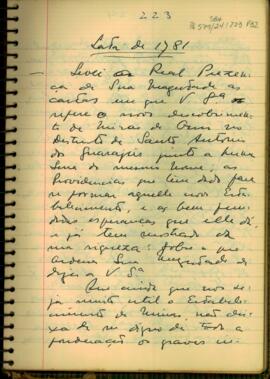 223
Lata de 1781
— Levei à Real Presen-
ça de Sua Magestade as
cartas em que V Sª re-
fere o novo descobrimen-
to de Minas de Ouro no
Districto de Santo Antonio
do junto a
Serra do mesmo nome, as
Providencias que tem dado para
se formar aquelle novo Esta-
belecimento, e as bem fun-
didas esperanças que elle dá,
e já tem mostrado da
sua riqueza: Sobre o que
ordena Sua Magestade
diga a V Sª
Que ainda que nos se-
ja muito util o Estabele-
cimento de Minas, não dei-
xa de ser digno de toda a
ponderação os graves in-